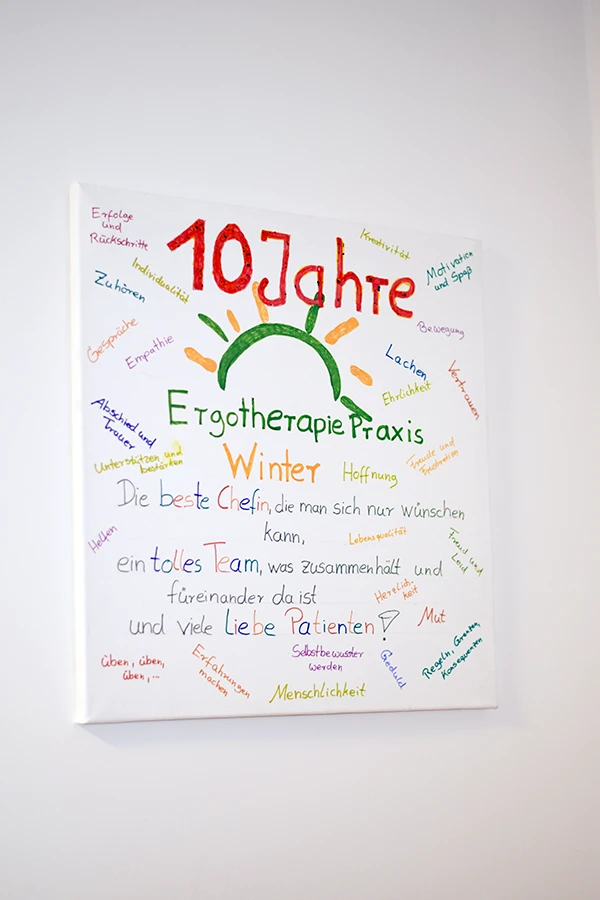 10 Jahre
Erfolge
und
Rückschritte
Kreativität
Motivation
und Spaß
Individualität
Zuhören
Bewegung
Gespräche
Empathie
Lachen
Ehrlichkeit
Vertrauen
Abschied und
Trauer
Ergotherapie Praxis
Unterstützen und
bestärken
Winter
Hoffnung
Freude und
Frustration
Die beste Chefin, die man sich nur wünschen
kann,
Lebensqualität
Helfen
Freud und
Leid
ein tolles Team, was zusammenhält und
füreinander da ist
Herzlich-
keit
und viele liebe Patienten!
Mut
üben, üben,
üben,...
Erfahrungen
machen
Selbstbewusster
werden
Geduld
Regeln, Grenzen,
Konsequenzen
Menschlichkeit